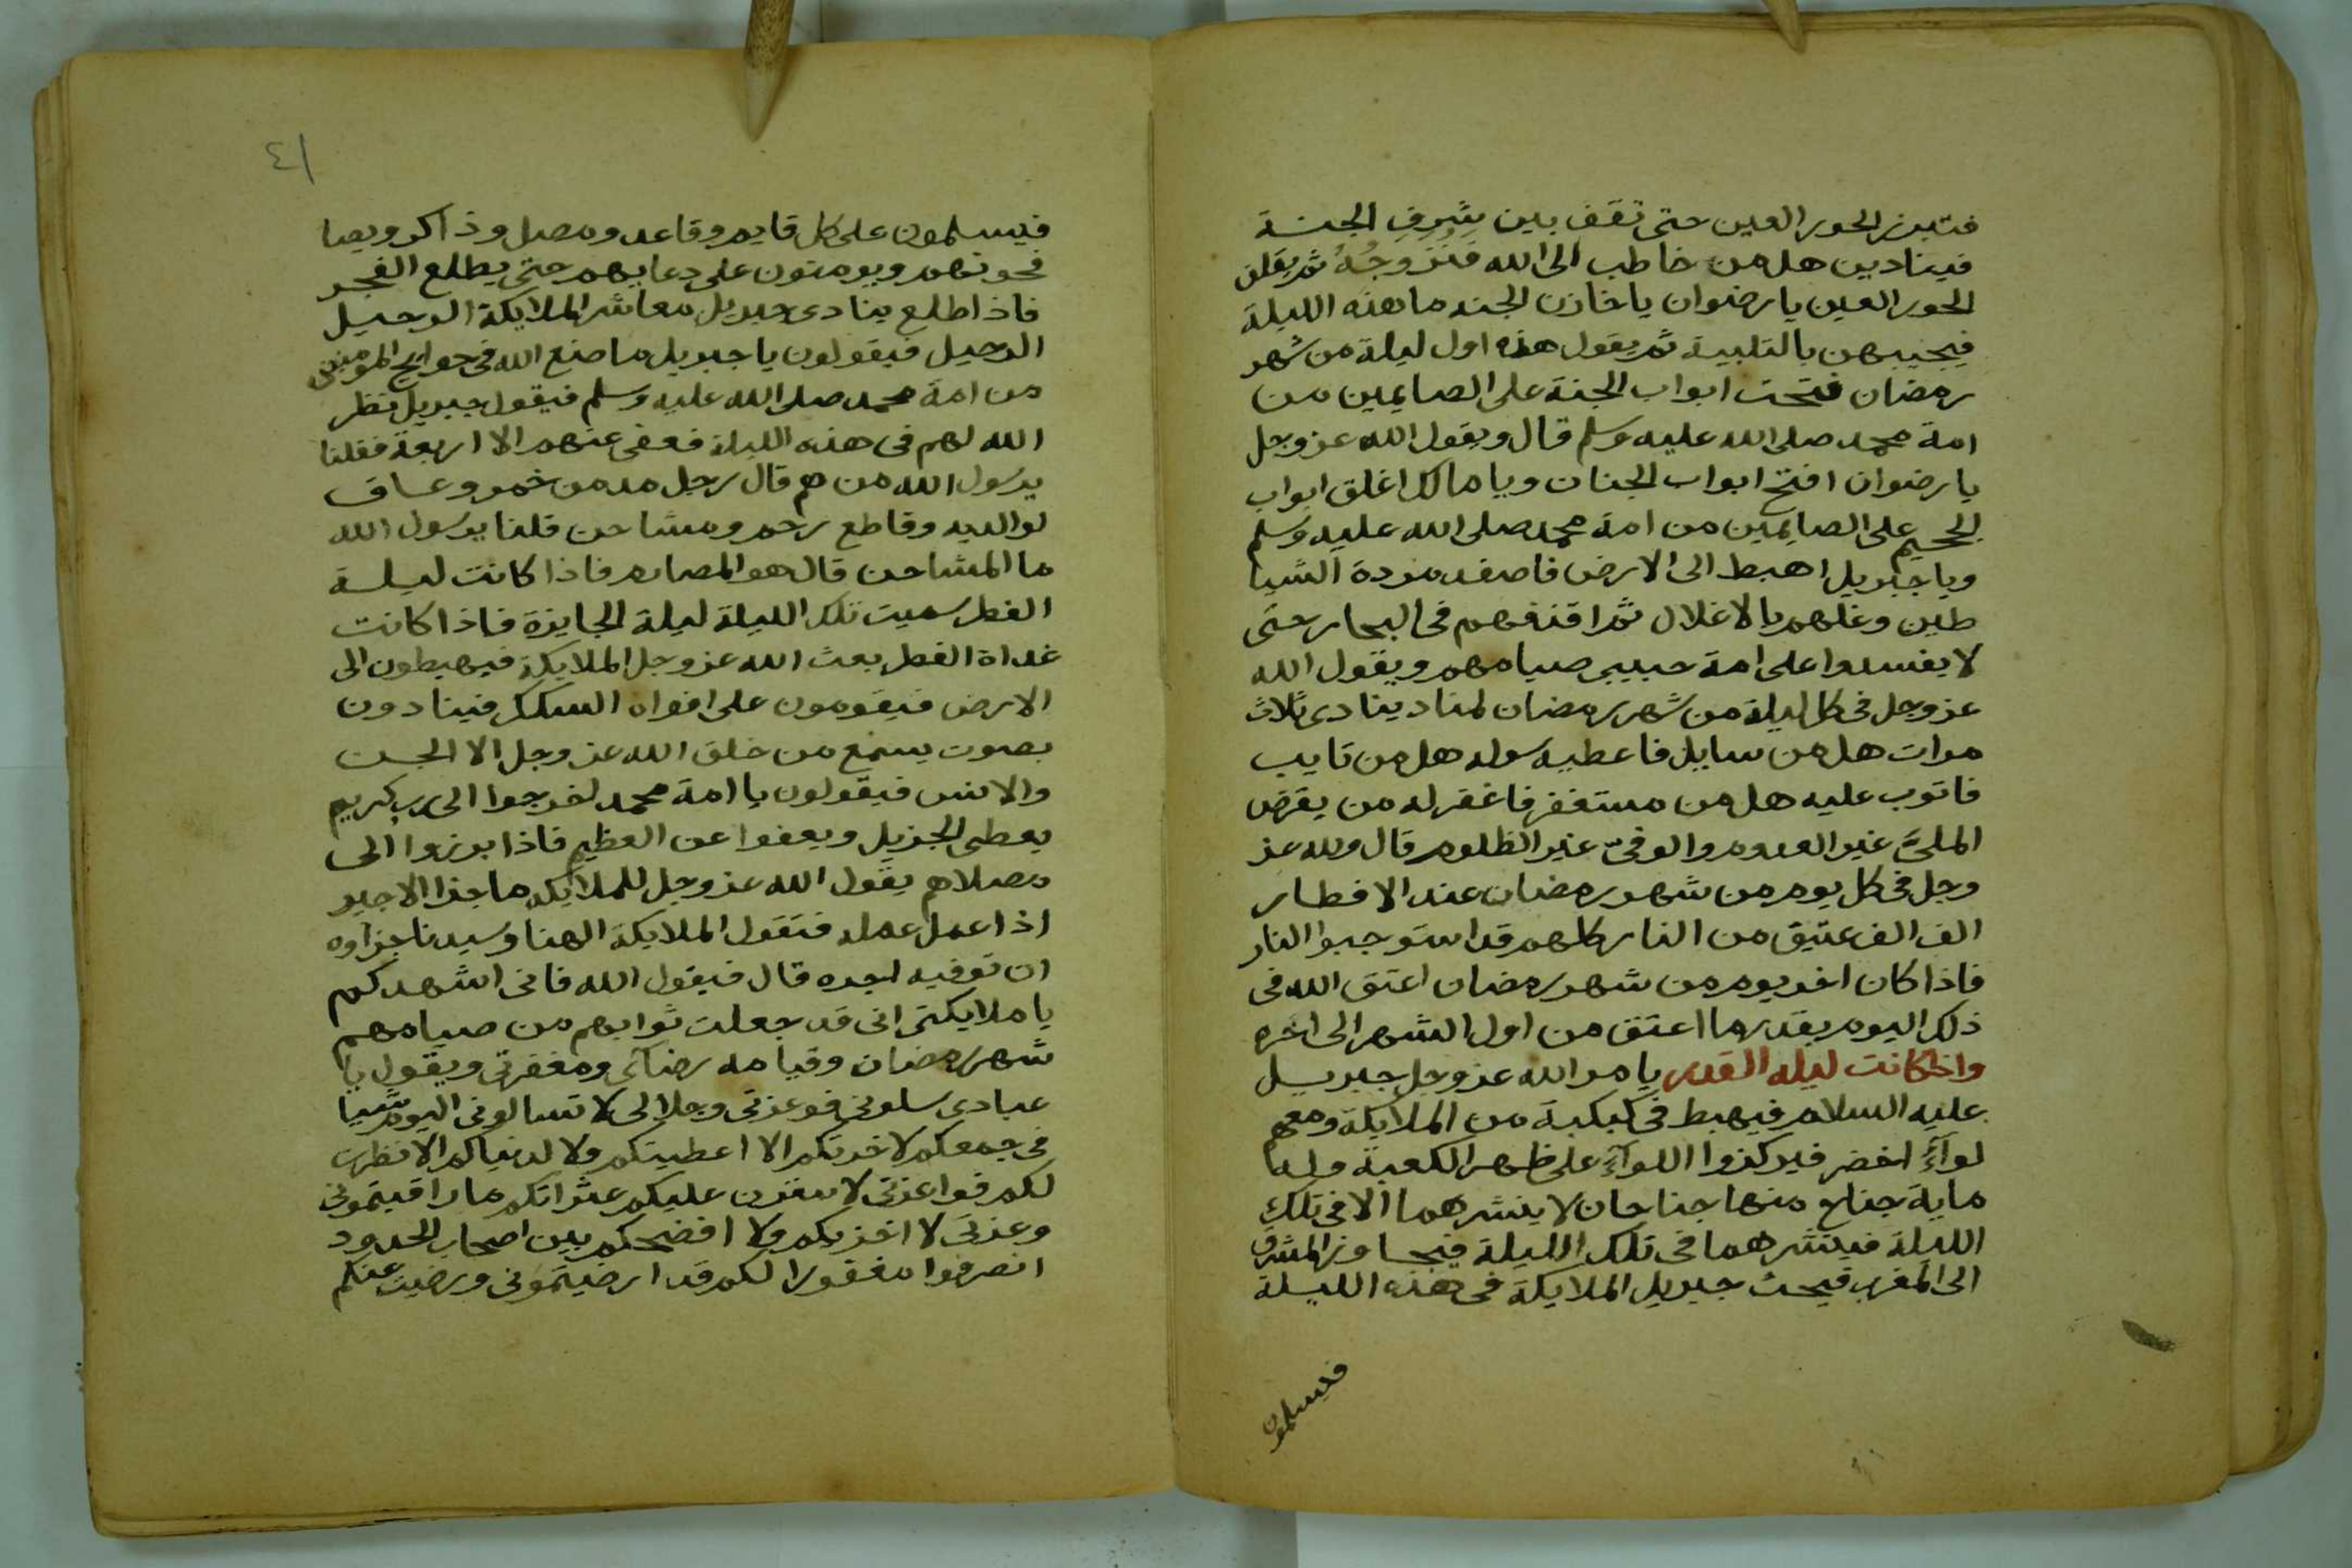 فتبرز الحور العين حتى تقف بين شرف الجنة
فينادين هل من خاطب الى الله فنزوجه ثم يقلن
الحور العين يا رضوان يا خازن الجنه ما هذه الليلة
فيجيبهن بالتلبية ثم يقول هذه اول ليلة من شهر
رمضان فتحت ابواب الجنة على الصايمين من
امة محمد صلى الله عليه وسلم قال ويقول الله عز وجل
يا رضوان افتح ابواب الجنان ويا مالك اغلق ابواب
الجحيم على الصايمين من امة محمد صلى الله عليه وسلم
ويا جبريل اهبط الى الارض فاصفد مردة الشيا
طين وغلهم بالاغلال ثم اقذفهم فى البحار حتى
لا يفسدوا على امة حبيبي صيامهم ويقول الله
عز وجل فى كل ليلة من شهر رمضان لمناد ينادى ثلاث
مرات هل من سايل فاعطيه سوله هل من تايب
فاتوب عليه هل من مستغفر فاغفر له من يقرض
الملئ غير العدوم والوفى غير الظلوم قال ولله عز
وجل فى كل يوم من شهر رمضان عند الافطار
الف الف عتيق من النار كلهم قد استوجبوا النار
فاذا كان اخر يوم من شهر رمضان اعتق الله فى
ذلك اليوم بقدر ما اعتق من اول الشهر الى اخره
واذا كانت ليله القدر يامر الله عز وجل جبريل
عليه السلام فيهبط فى كبكبة من الملايكة ومعهم
لواء اخضر فيركزوا اللواء على ظهر الكعبة وله
ماية جناح منها جناحان لا ينشرهما الا فى تلك
الليلة فينشرهما فى تلك الليلة فيجاوز المشرق
الى المغرب فيحث جبريل الملايكة فى هذه الليلة
فيسلمون
٤١
فيسلمون على كل قايم وقاعد ومصل وذاكر ويصا
فحونهم ويومنون على دعايهم حتى يطلع الفجر
فاذا طلع ينادى جبريل معاشر الملايكة الرحيل
الرحيل فيقولون يا جبريل ما صنع الله فى حوايج المومنين
من امة محمد صلى الله عليه وسلم فيقول جبريل نظر
الله لهم فى هذه الليلة فعفى عنهم الا اربعة فقلنا
يرسول الله من هم قال رجل مدمن خمر وعاق
لوالديه وقاطع رحم ومشاحن قلنا يرسول الله
ما المشاحن قال هو المصارم فاذا كانت ليلة
الفطر سميت تلك الليلة ليلة الجايزة فاذا كانت
غداة الفطر بعث الله عز وجل الملايكة فيهبطون الى
الارض فيقومون على افواه السكك فينادون
بصوت يسمع من خلق الله عز وجل الا الجن
والانس فيقولون يا امة محمد اخرجوا الى رب كريم
يعطى الجزيل ويعفوا عن العظيم فاذا برزوا الى
مصلاهم يقول الله عز وجل للملايكه ما جزا الاجير
اذا عمل عمله فتقول الملايكة الهنا وسيدنا جزاوه
ان توفيه اجره قال فيقول الله فانى اشهدكم
يا ملايكتى انى قد جعلت ثوابهم من صيامهم
شهر رمضان وقيامه رضآى ومغفرتى ويقول يا
عبادى سلونى فوعزتى وجلالى لا تسالونى اليوم شيا
فى جمعكم لاخرتكم الا اعطيتكم ولا لدنياكم الا نظرت
لكم فوا عزتى لاسترن عليكم عثراتكم ما راقبتمونى
وعزتى لا اخزيكم ولا افضحكم بين اصحاب الحدود
انصرفوا مغفورا لكم قد ارضيتمونى ورضيت عنكم